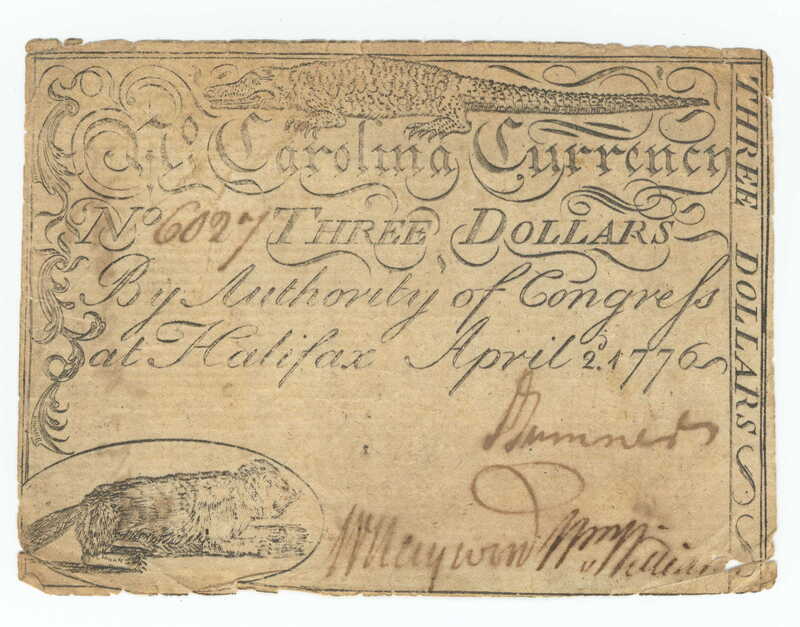 No Carolina Currency
No 6027 THREE DOLLARS
By Authority of Congress
at Halifax April 2d. 1776
J Sumner
W Haywood Wm Williams
THREE DOLLARS